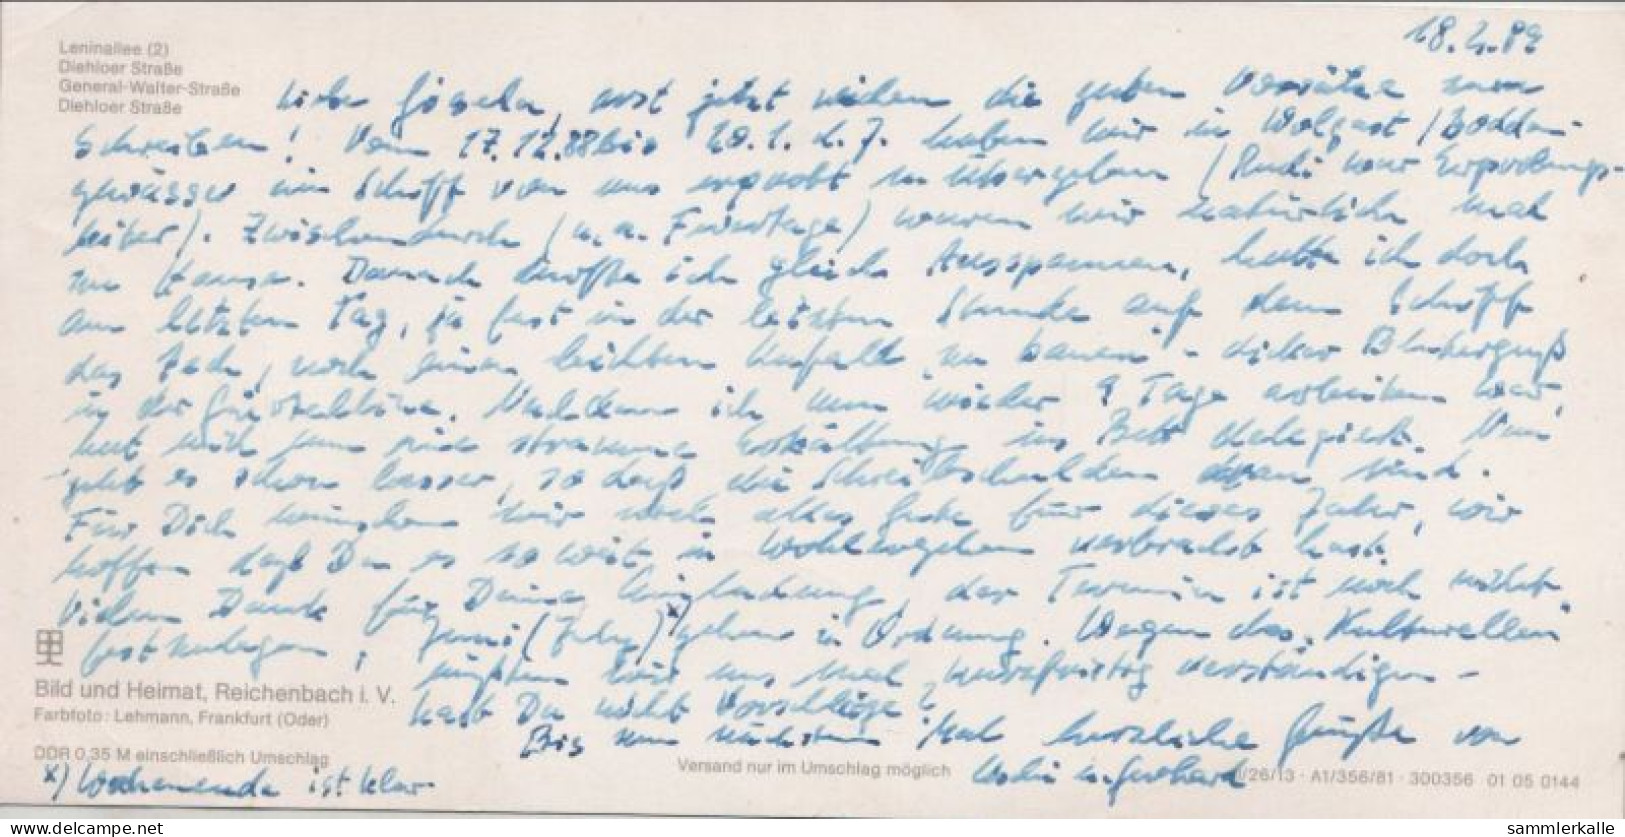 18.2.89
Leninallee (2)
Diehloer Straße
General-Walter-Straße
Diehloer Straße
Liebe Gisela, erst jetzt reichen die guten Vorsätze zum
Schreiben! Vom 17.12.88 bis 20.1. d. J. haben wir in Wolgast / Bodden-
gewässer ein Schiff von uns erprobt u. übergeben (Rudi war Erprobungs-
leiter). Zwischendurch (u. a. Feiertage) waren wir natürlich mal
zu Hause. Danach durfte ich gleich ausspannen, hatte ich doch
am letzten Tag, ja fast in der letzten Stunde auf dem Schiff
das Pech, noch einen leichten Unfall zu bauen - dicker Bluterguß
in der. Nachdem ich nun wieder 9 Tage arbeiten war,
hat mich eine stramme Erkältung ins Bett. Nun
geht es schon besser, so daß die Schreibschulden dran sind.
Für Dich wünschen wir noch alles Gute für dieses Jahr, wir
hoffen daß Du es so weit in Wohlergehen verbracht hast.
Vielen Dank für Deine Einladung, der Termin ist noch nicht
festzulegen, Juni (Juli) x) gehen in Ordnung. Wegen des Kulturellen
müßten wir uns mal kurzfristig verständigen -
hast Du nicht Vorschläge?
Bis zum nächsten Mal herzliche Grüße von
u. Gerhard
x) Wochenende ist klar
Bild und Heimat, Reichenbach i. V.
Farbfoto: Lehmann, Frankfurt (Oder)
DDR 0,35 M einschließlich Umschlag
Versand nur im Umschlag möglich
/26/13 · A1/356/81 · 300356 01 05 0144
www.delcampe.net
sammlerkalle